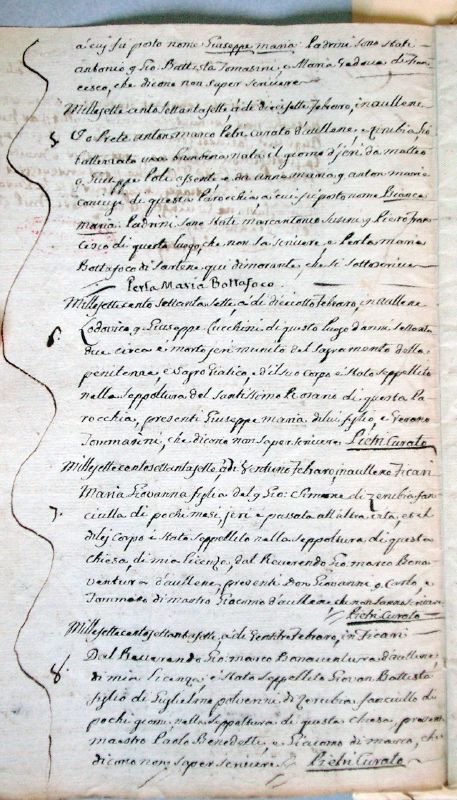 à cui fù posto nome Giuseppe maria. Padrini sono stati
antonio q Gio Battista Tomasini, e Maria Gedoeia di fran
cesco, che dicono non saper scrivere
Millesettecentosettantasette, à di dieci sette febraro, in aullene
5. Io Prete anton marco Petri Curato d'aullene e Zerubia hò
battezzato una bambina nata il giorno d'jeri da matteo
q Giuseppe Poli assente e da anna maria q anton maria
coniugi di questa Parocchia à cui fù posto nome Bianca
maria. Padrini sono stati marcantonio Susini q Pietro fran
cesco di questo luogo, che non sa scrivere e Perla maria
Bottafoco di Sartene qui dimorante, che si sottoscrive
Perla Maria Bottafoco.
Millesettecento settanta sette, à di dieciotto febraro, in aullene
6. Lodovico q Giuseppe Cucchini di questo luogo d'anni settanta
due circa è morto jeri munito del sagramento della
penitenza e sagro Viatico, e d'il suo Corpo è stato seppellito
nella seppoltura del Santissimo Rosario di questa Pa
rocchia, presenti Giuseppe maria di lui figlio, e
Tommasini, che dicono non saper scrivere Pietri Curato
Millesettecentosettantasette, à di Ventuno febraro, in aullene Ficari
7. Maria Giovanna figlia del q Gio: Simone di Zerubia fan
ciulla di pochi mesi, jeri è passata all'altra vita, et il
di lei Corpo è stato seppellito nella seppoltura di questa
chiesa di mia licenza, dal Reverendo Gio marco Bona
ventura d'aullene, presenti Don Giovanni q Carlo, e
Tommaso di mastro Giacomo d'aullene che non sanno scrivere
Pietri Curato
Millesettecentosettantasette, à di Ventitre febraro, in Ficari
8. Dal Reverendo Gio: marco Bonaventura d'aullene,
di mia licenza è stato seppellito Giovan Battista
figlio di Guglielmo di Zerubia fanciullo di
pochi giorni, nella seppoltura di questa chiesa, presenti
maestro Paolo Benedetti, e Giacomo di marco, che
dicono non saper scrivere Pietri Curato